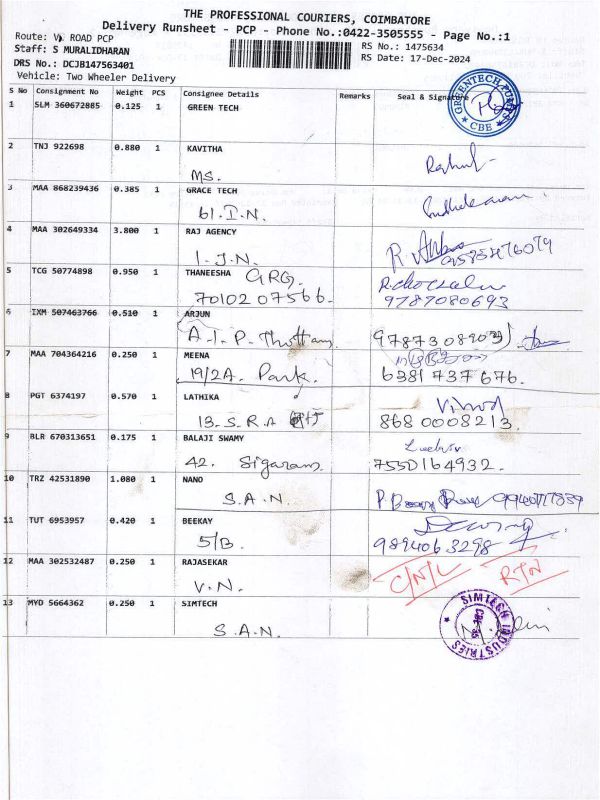 THE PROFESSIONAL COURIERS, COIMBATORE
Delivery Runsheet - PCP - Phone No.:0422-3505555 - Page No.:1
Route: ROAD PCP
Staff: S MURALIDHARAN
RS No.: 1475634
DRS No.: DCJB147563401
RS Date: 17-Dec-2024
Vehicle: Two Wheeler Delivery
S No Consignment No Weight PCS Consignee Details Remarks Seal & Signature
1 SLM 360672885 0.125 1 GREEN TECH
GREENTECH CBE
2 TNJ 922698 0.880 1 KAVITHA
MS. Rahul
3 MAA 868239436 0.385 1 GRACE TECH
61.I.N.
4 MAA 302649334 3.800 1 RAJ AGENCY
I-J.N.
5 TCG 50774898 0.950 1 THANEESHA GRG.
7010207566. 9787080693
6 IXM 507463766 0.510 1 ARJUN
A-I-P-Thottam
7 MAA 704364216 0.250 1 MEENA
19/2A. Park. 6381737676.
8 PGT 6374197 0.570 1 LATHIKA
13-S.R.A 8680008213.
9 BLR 670313651 0.175 1 BALAJI SWAMY
42. Sigaram 7550164932.
10 TRZ 42531890 1.080 1 NANO
S.A.N.
11 TUT 6953957 0.420 1 BEEKAY
5/B. 9894063298
12 MAA 302532487 0.250 1 RAJASEKAR
V.N. C/N/L RTN
13 MYD 5664362 0.250 1 SIMTECH
S.A.N. SIMTECH INDUSTRIES